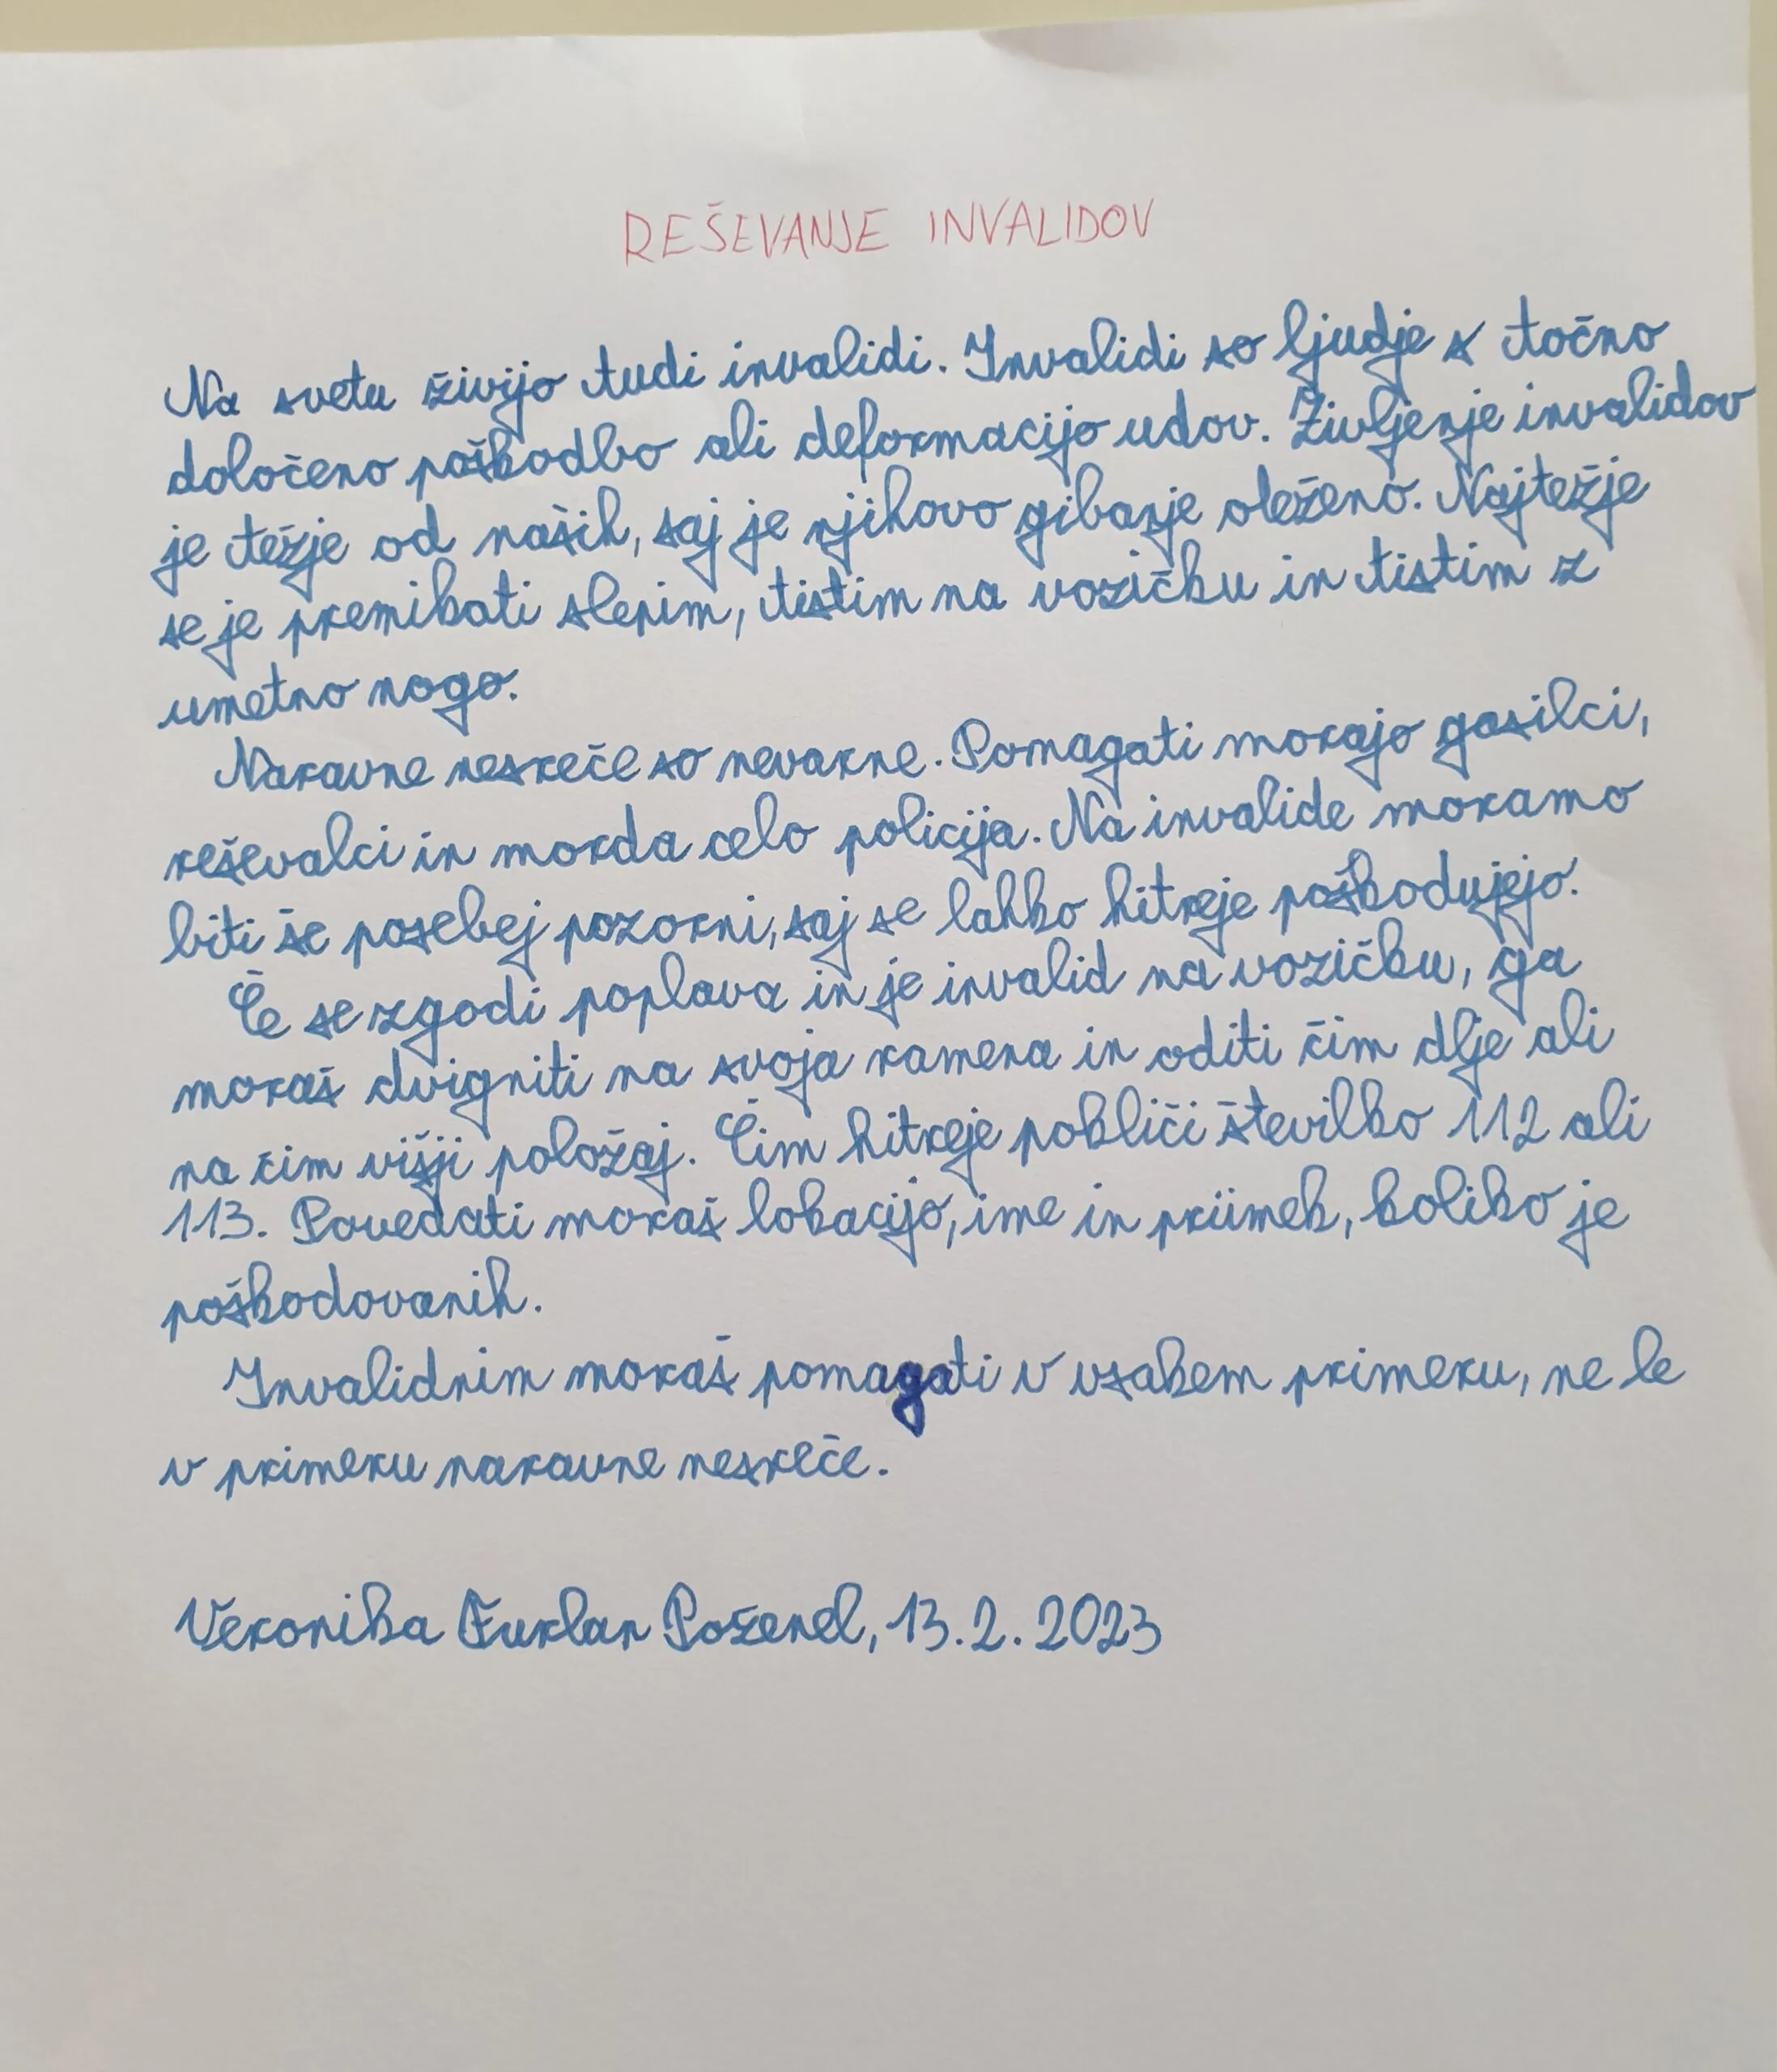 REŠEVANJE INVALIDOV
Na svetu živijo tudi invalidi. Invalidi so ljudje s točno
določeno poškodbo ali deformacijo udov. Življenje invalidov
je težje od naših, saj je njihovo gibanje oteženo. Najtežje
se je premikati slepim, tistim na vozičku in tistim z
umetno nogo.
Naravne nesreče so nevarne. Pomagati morajo gasilci,
reševalci in morda celo policija. Na invalide moramo
biti še posebej pozorni, saj se lahko hitreje poškodujejo.
Če se zgodi poplava in je invalid na vozičku, ga
moraš dvigniti na svoja ramena in oditi čim dlje ali
na čim višji položaj. Čim hitreje pokliči številko 112 ali
113. Povedati moraš lokacijo, ime in priimek, koliko je
poškodovanih.
Invalidnim moraš pomagati v vsakem primeru, ne le
v primeru naravne nesreče.
Veronika Furlan Poženel, 13. 2. 2023